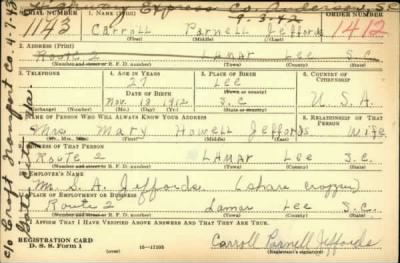 Highway Express Co. Anderson, SC
9-3-42
SERIAL NUMBER 1. NAME (Print) ORDER NUMBER
1143 Carroll Parnell Jeffords 1412
(First) (Middle) (Last)
2. ADDRESS (Print)
Route 2 Lamar Lee S.C.
(Number and street or R. F. D. number) (Town) (County) (State)
3. TELEPHONE 4. AGE IN YEARS 5. PLACE OF BIRTH 6. COUNTRY OF CITIZENSHIP
27 Lee
DATE OF BIRTH (Town) (County)
Nov. 1912 S.C U.S.A.
(Exchange) (No.) (Mo.) (Day) (Yr.) (State or country)
7. NAME OF PERSON WHO WILL ALWAYS KNOW YOUR ADDRESS 8. RELATIONSHIP OF THAT PERSON
Mrs. Mary Howell Jeffords Wife
(Mr., Mrs., Miss) (First) (Middle) (Last)
9. ADDRESS OF THAT PERSON
Route 2 Lamar Lee S.C.
(Number and street or R. F. D. number) (Town) (County) (State)
10. EMPLOYER'S NAME
Mr. S. A. Jeffords (share cropper)
11. PLACE OF EMPLOYMENT OR BUSINESS
Route 2 Lamar Lee S.C.
(Number and street or R. F. D. number) (Town) (County) (State)
I AFFIRM THAT I HAVE VERIFIED ABOVE ANSWERS AND THAT THEY ARE TRUE.
REGISTRATION CARD
D. S. S. Form 1 16-17105 Carroll Parnell Jeffords
(Registrant's signature)